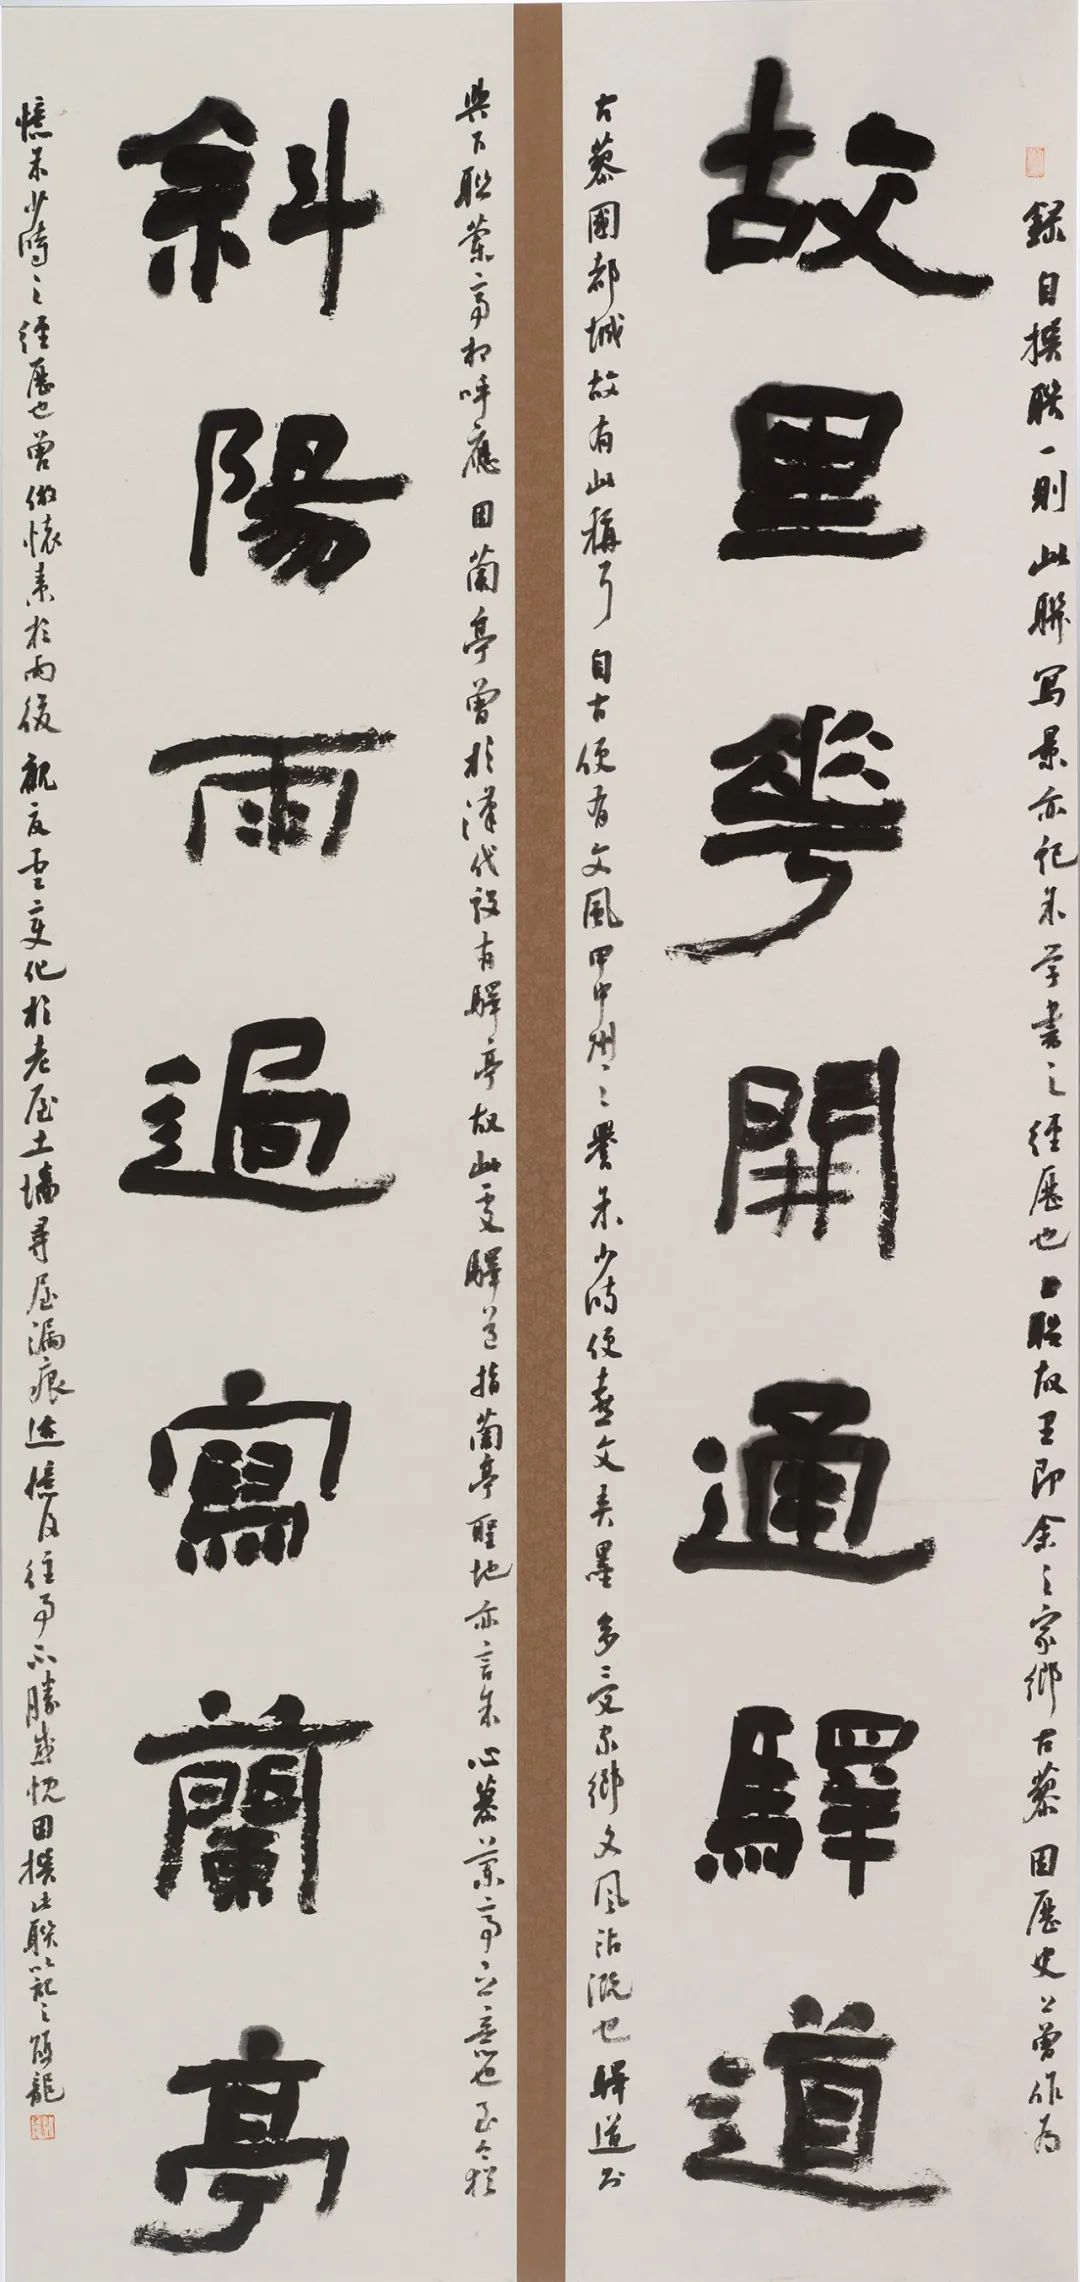 錄自撰聯一則 此聯寫景亦記朱學書之經歷也 上聯故里即余之家鄉古蔡 因歷史上曾作為
故里花開通驛道
古蔡國都城故有此稱了 自古便有文風甲中州之譽 朱少時便喜文弄墨 多受家鄉文風沾溉也 驛道則
與下聯蘭亭相呼應 因蘭亭曾於漢代設有驛亭 故此處驛道指蘭亭聖地 亦言朱心慕蘭亭之意也 至今猶
斜陽雨過寫蘭亭
憶朱少時之經歷也 曾仿懷素於雨後觀夏雲變化 於老屋土墻尋屋漏痕迹 憶及往事不勝感慨 因撰此聯以記之